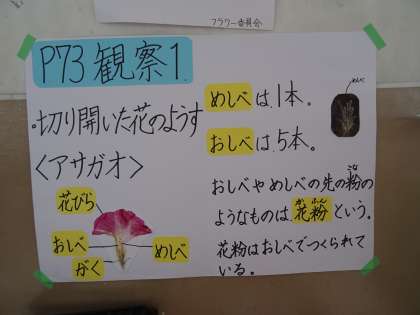 フラワー委員会
P73 観察1.
・切り開いた花のようす
〈アサガオ〉
花びら
おしべ
がく
めしべ
めしべは1本。
おしべは5本。
めしべ
おしべやめしべの先の粉のこな
ようなものは花粉かふんという。
花粉はおしべでつくられて
いる。